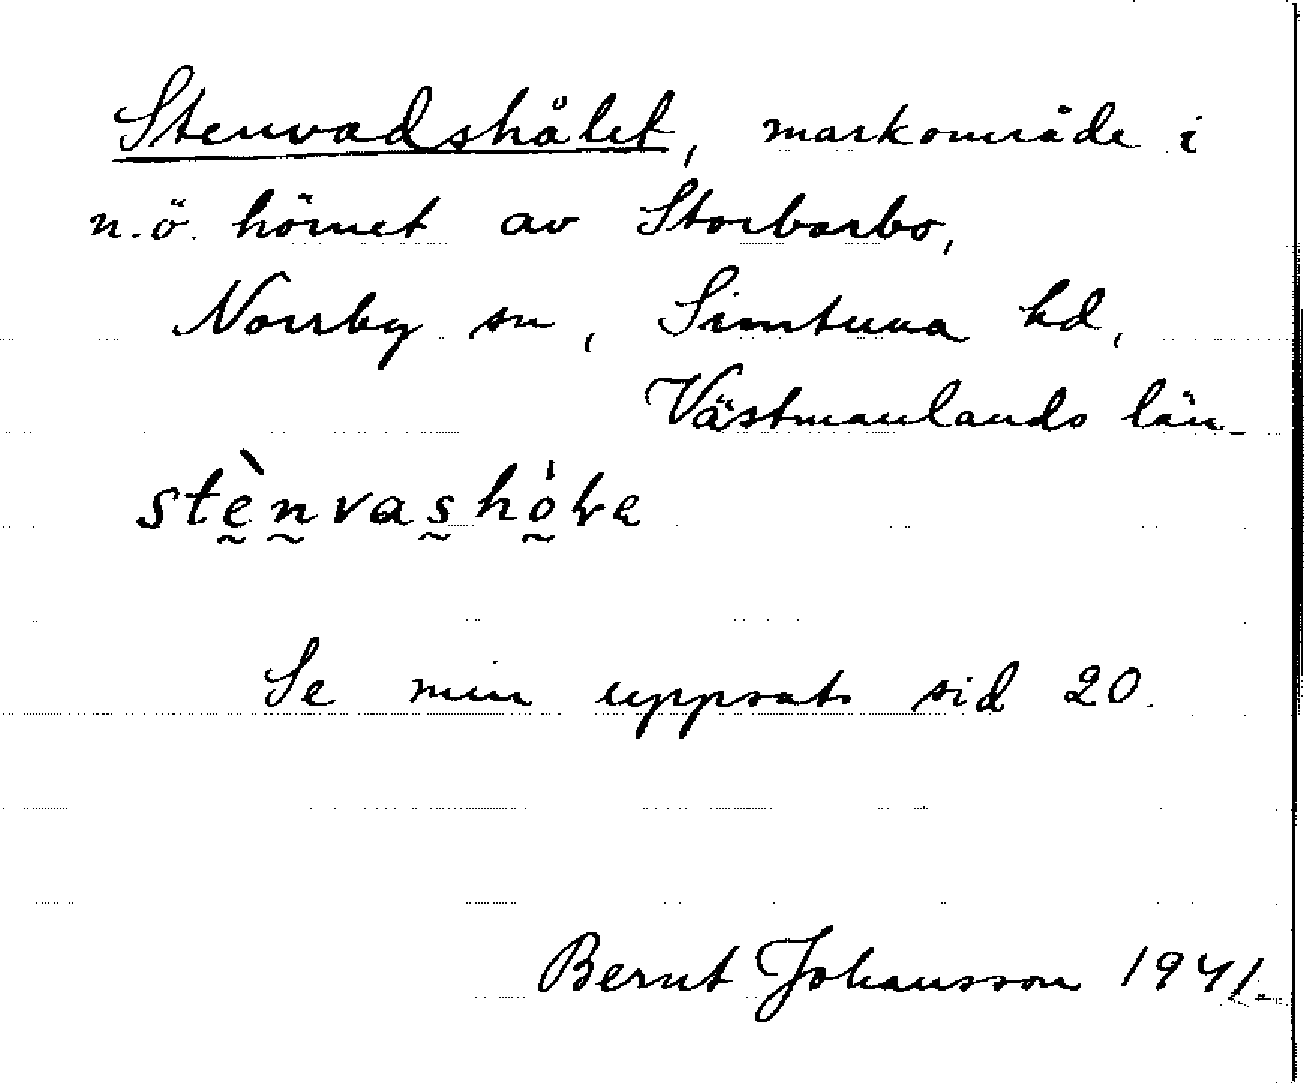 Stenvadshålet, markområde i
n.ö. hörnet av Storbarbo,
Norrby sn, Simtuna hd,
Västmanlands län.
stènvashola
Se min uppsats sid 20.
Bernt Johansson 1941.